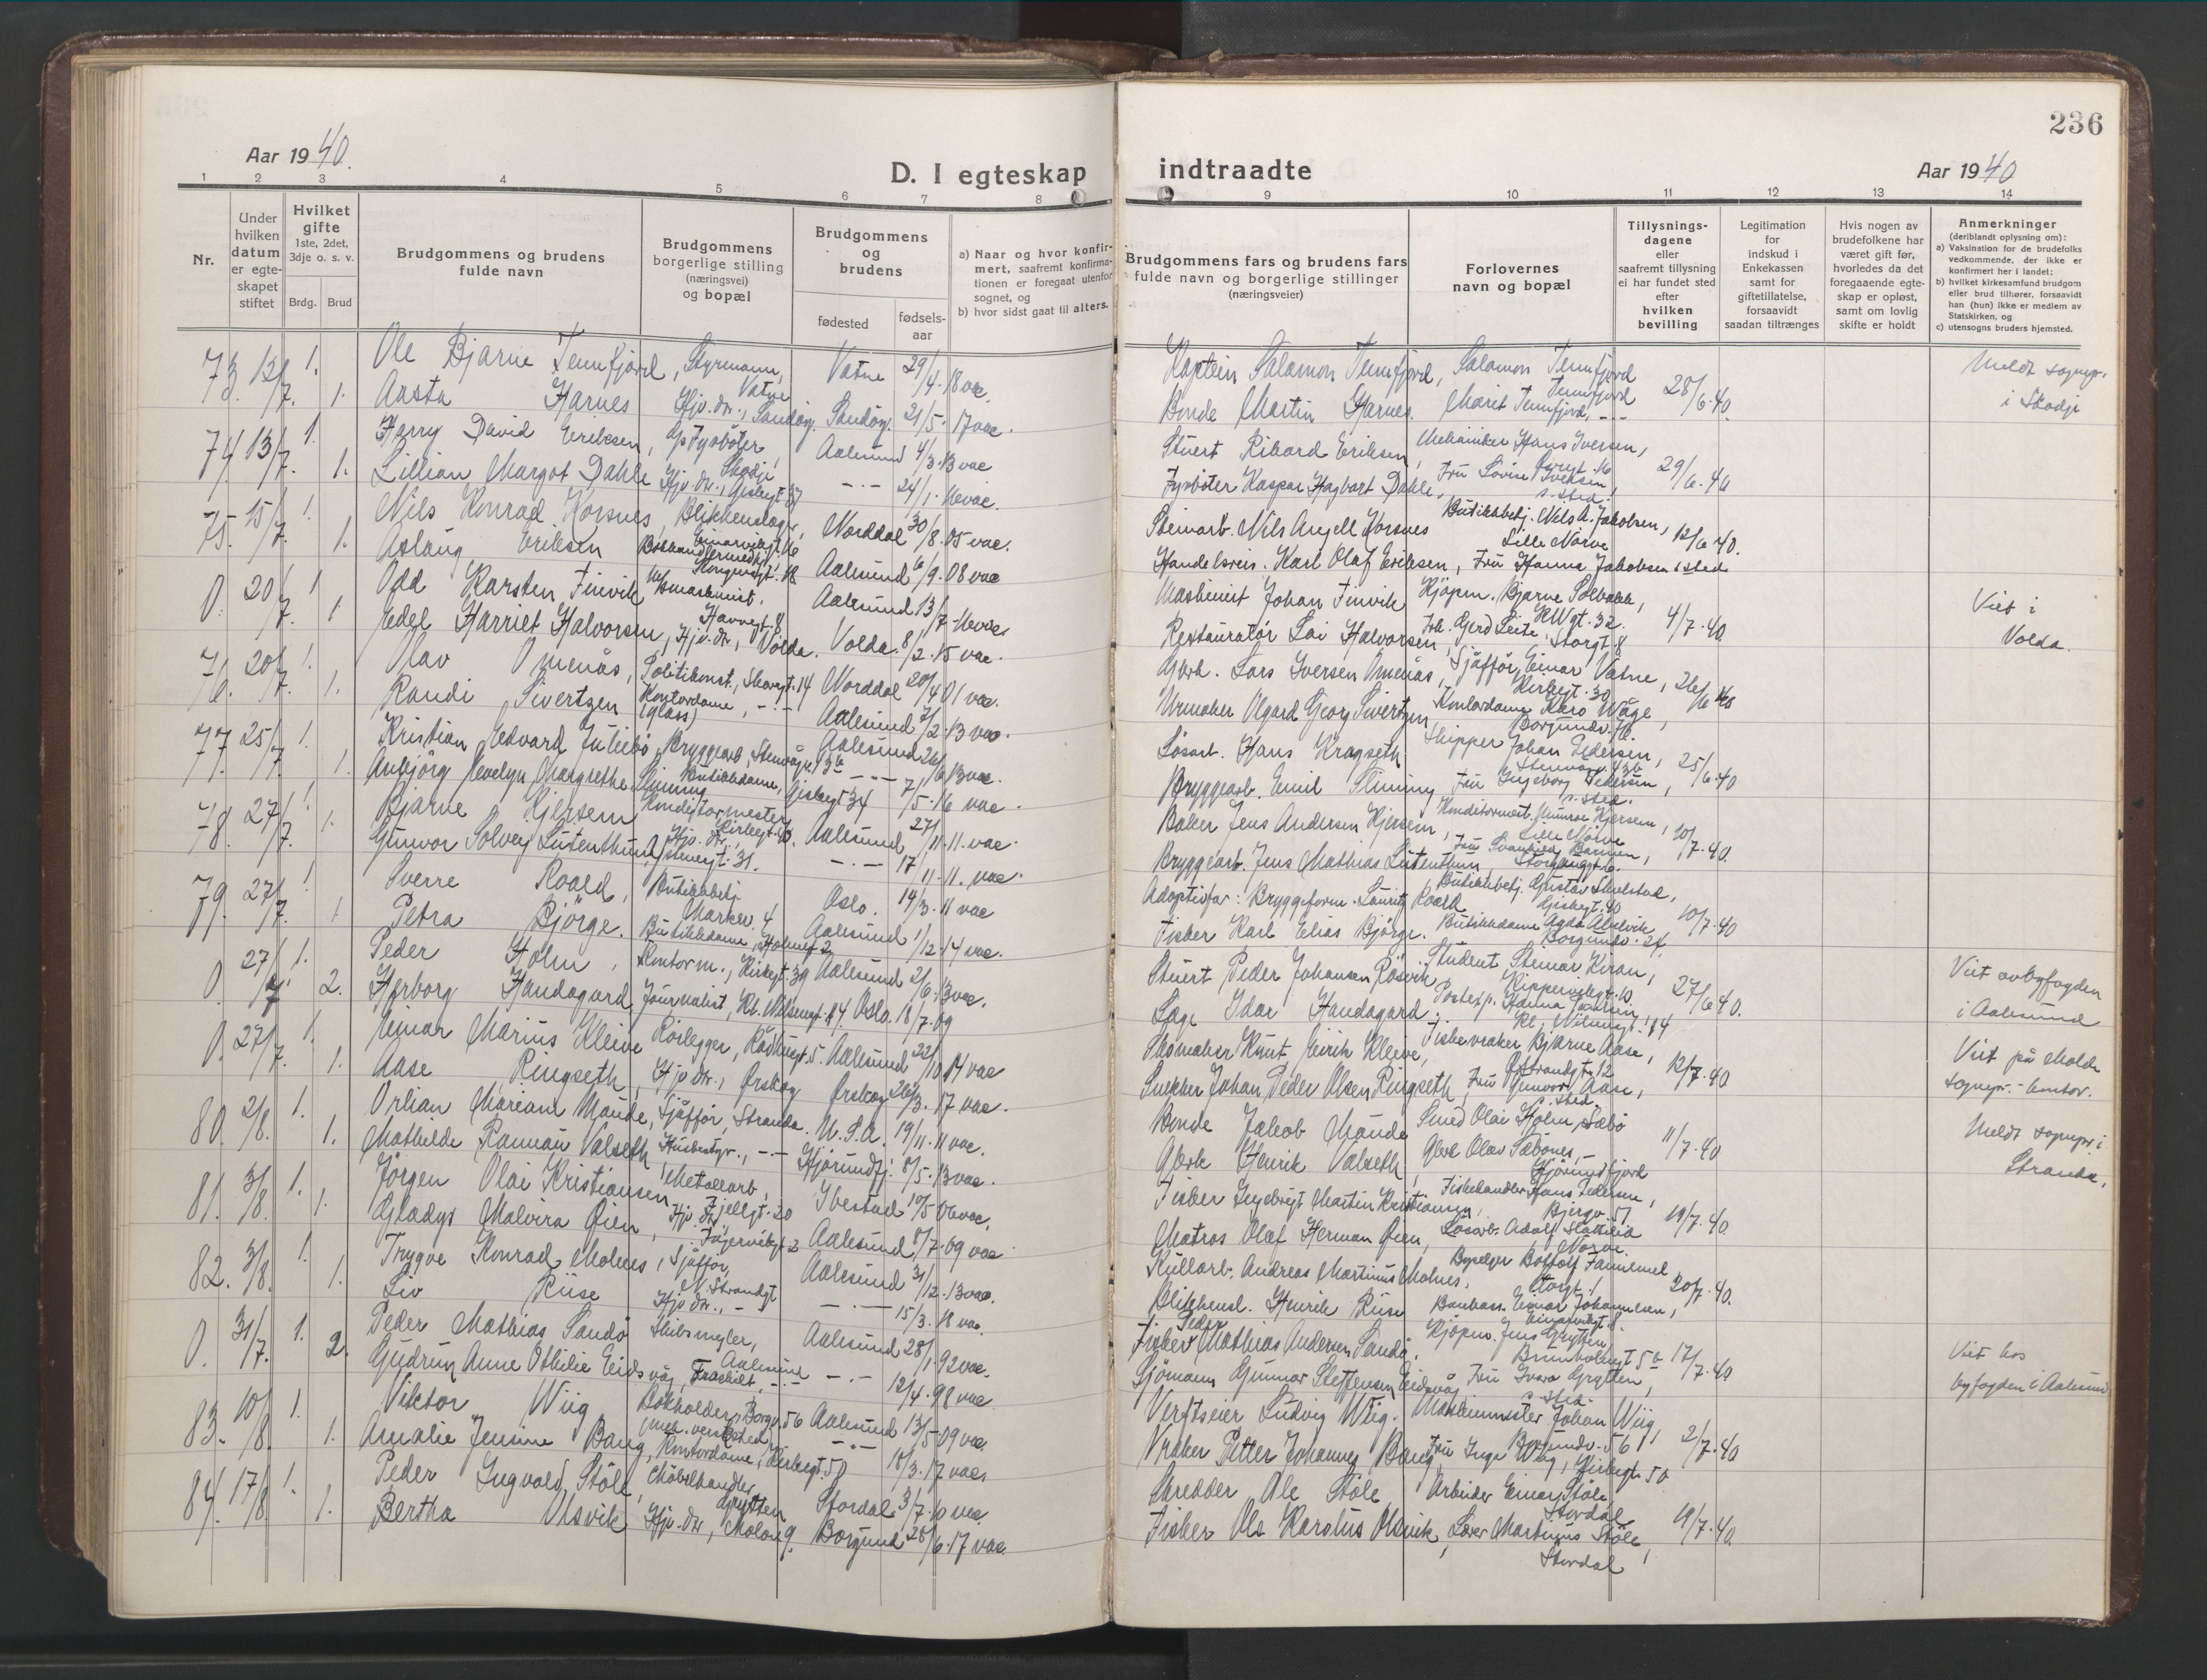 236
Aar 1940.
D. I egteskap indtraadte
Aar 1940
1 2 3 4 5 6 7 8 9 10 11 12 13 14
Nr.
Under hvilken datum er egteskapet stiftet
Hvilket gifte 1ste, 2det, 3dje o. s. v.
Brdg. Brud
Brudgommens og brudens fulde navn
Brudgommens borgerlige stilling (næringsvei) og bopæl
Brudgommens og brudens
fødested fødselsaar
a) Naar og hvor konfirmert, saafremt konfirmationen er foregaat utenfor sognet, og
b) hvor sidst gaat til alters.
Brudgommens fars og brudens fars fulde navn og borgerlige stillinger (næringsveier)
Forlovernes navn og bopæl
Tillysningsdagene eller saafremt tillysning ei har fundet sted efter hvilken bevilling
Legitimation for indskud i Enkekassen samt for giftetillatelse, forsaavidt saadan tiltrænges
Hvis nogen av brudefolkene har været gift før, hvorledes da det foregaaende egteskap er opløst, samt om lovlig skifte er holdt
Anmerkninger (deriblandt oplysning om):
a) Vaksination for de brudefolks vedkommende, der ikke er konfirmert her i landet;
b) hvilket kirkesamfund brudgom eller brud tilhører, forsaavidt han (hun) ikke er medlem av Statskirken, og
c) utensogns bruders hjemsted.
73. 12/7. 1. Ole Bjarne Tennfjord, Styrmann, Vatne Vatne 29/4.18 vac. Kaptein Salamon Tennfjord, Salamon Tennfjord Tennfjord 28/6.40. Meldt sognepr. i Skodje
1. Aasta Harnes Hjv. dr., Sandöy. Sandöy. 21/5.17 vac. Bonde Martin Harnes. Marit Tennfjord, -"-
74. 13/7. 1. Harry David Eriksen, Skodje Aalesund 4/3.13 vac Stuert Rikard Eriksen, Mekaniker Hans Iversen, 29/6.40
1. Lillian Margot Dahle Hjv. dr., -"- 24/1.16 vac. Kaspar Hagbart Dahle, Fru Lovise Iversen, s. sted.
75. 15/7. 1. Nils Konrad Korsnes, Blikkenslager, Norddal 30/8.05 vac. Steinarb. Nils Angell Korsnes Butikkbetj. Nils A. Jakobsen, Lille Nörve 12/6.40.
1. Aslaug Eriksen Kongensgt. 18 Aalesund 6/9.08 vac Handelsreis. Karl Olaf Eriksen, Fru Hanna Jakobsen s. sted
0. 20/7. 1 Odd Karsten Finvik Maskinist. Aalesund 13/7.16 vac. Maskinist Johan Finvik Kjöpm. Bjarne Solbakk, 4/7.40 Viet i Volda.
1 Edel Harriet Halvorsen, Hjv. dr., Volda. Volda. 8/2.15 vac. Restauratör Lai Halvorsen, Frk. Gerd Leite, Storgt. 8
76. 20/7. 1. Olav Omenås, Politikonst., Skaregt. 14 Norddal 20/4.01 vac. Gbrk. Lars Iversen Omenås, Sjåffør Einar Vatne, Kirkegt. 30 26/6.40
1. Randi Sivertzen Kontordame, -"- (glass) Aalesund 7/2.13 vac. Urmaker Olgard Georg Sivertzen, Kontordame Karo Wåge, Borgundv.
77. 25/7. 1. Kristian Edvard Juliebö Bryggearb., Aalesund 26/6.13 vac. Lösarb. Hans Kragseth Skipper Johan Pedersen, 25/6.40
1. Anbjörg Evelyn Margrethe Slinning Butikkdame, Giskegt. 34 -"- 7/5.16 vac. Bryggearb. Emil Slinning Fru Ingeborg Pedersen, s. sted.
78. 27/7. 1. Bjarne Kjersem Konditormester, Kirkegt. Aalesund 27/11.11. vac. Baker Jens Andersen Kjersem, Konditormest. Kjersem, Lille Nörve 10/7.40.
1. Gunvor Solveig Lutenthun, Hjv. dr., -"- 17/11.11. vac. Bryggearb. Jens Mathias Lutenthun Fru
79. 27/7. 1 Sverre Roald, Butikkbetj. Oslo. 14/3.11 vac Adoptivfar: Bryggeform. Lauritz Roald Butikkbetj. Gustav Skulstad, Giskegt. 40 10/7.40
1 Petra Björge. Butikkdame, Aalesund 1/12.14 vac. Fisker Karl Elias Björge. Butikkdame Borgundv. 24.
0. 27/7. 1. Peder Holm, Kontorm., Kirkegt. 39 Aalesund 21/6.13 vac. Stuert Peder Johansen Student Steinar Kiran, 27/6.40. Viet av byfogden i Aalesund
2. Herborg Handagard Journalist, Oslo. 18/7.09 Läge Idar Handagard. Postexp. Hanna
0. 27/7. 1. Einar Marius Kleive Rörlegger, Rådhusgt. 5. Aalesund 22/10.14 vac Skomaker Knut Eirik Kleive, Fiskevraker Bjarne Aase, 12/7.40 Viet på Molde sognepr.-kontor.
1. Aase Ringseth, Hjv. dr., Ørskog Ørskog 26/3.17 vac. Snekker Johan Peder Olsen Ringseth, Fru Gunvor Aase, s. sted
80. 2/8. 1. Orlian Mariam Maude, Sjåffør, Stranda. U.S.A. 19/11.11 vac. Bonde Jakob Maude Smed Olai Holm, Sæbö 11/7.40 Meldt sognepr. i Stranda.
1. Mathilde Valseth, Husbestyr., -"- Hjörundfj. 8/5.13 vac. Gbrk Henrik Valseth, Gbrk Olav Sæbönes, Hjörundfjord
81. 3/8. 1. Jörgen Olai Kristiansen, Metallarb., Fjellgt. 20 Ibestad 10/5.06 vac. Fisker Ingebrigt Martin Kristiansen, Fiskehandler Hans Pedersen, 19/7.40.
1. Gladys Malvira Øien, Hjv. dr. Aalesund 8/7.09 vac. Matros Olaf Herman Øien, Lösarb. Adolf Nörve.
82. 3/8. 1. Trygve Konrad Molnes, Sjåffør, N. Strandgt Aalesund 31/12.13 vac. Kullarb. Andreas Martinius Molnes, Storgt. 1 20/7.40.
1. Liv Riise Hjv. dr., -"- -"- 15/3.18 vac. Blikkensl. Henrik Riise Einar Johannesen,
0. 31/7. 1. Peder Mathias Sandö Skibsmegler, Aalesund Aalesund 28/1.92 vac. Fisker Peder Mathias Andersen Sandö. Kjöpm. Jens Grytten, 17/7.40 Viet hos byfogden i Aalesund
2. Gudrun Anne Othilie Eidsvåg, Fraskilt, -"- -"- 12/4.98 vac Sjömann Gunnar Steffensen Eidsvåg Fru Grytten, s. sted.
83. 10/8. 1. Viktor Wiig, Bokholder, Borgv. 56 Aalesund 13/5.09 vac. Verftseier Ludvig Wiig. Johan Wiig, Borgundv. 56 2/7.40
1. Amalie Jensine Bang, Kontordame, Kirkegt. 50 -"- 18/3.17 vac. Vraker Petter Johannes Bang, Fru Inga Wiig, Kirkegt. 50
84. 17/8 1. Peder Ingvald Stöle, Möbelhandler, Stordal 3/7.10 vac Skredder Ole Stöle Arbeider Einar Stöle Stordal 19/7.40.
1. Bertha Ulsvik Hjv. dr., Borgund 28/6.17 vac. Fisker Ole Karolus Ulsvik, Martinus Stöle, Stordal